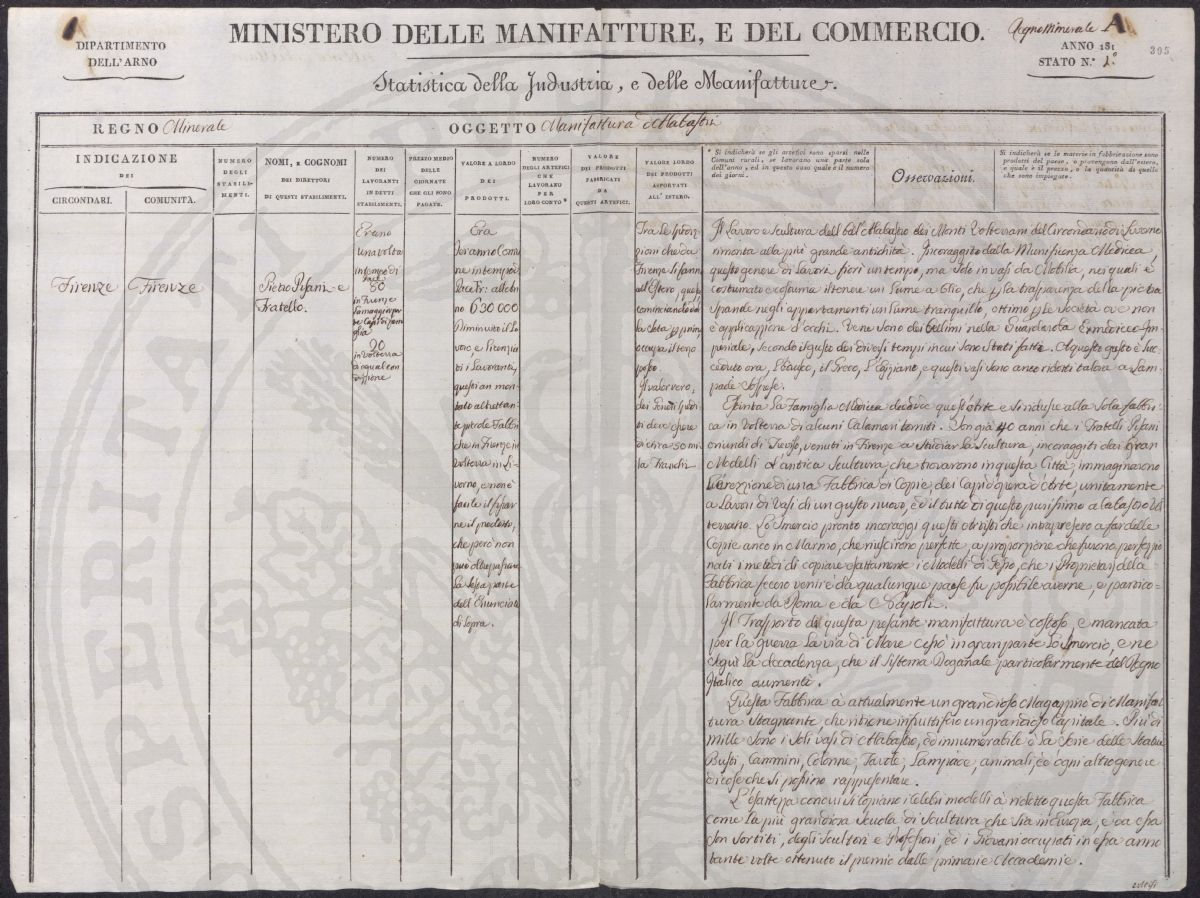 DIPARTIMENTO
DELL'ARNO
MINISTERO DELLE MANIFATTURE, E DEL COMMERCIO.
Regno Minerale A
ANNO 181
STATO N.º 1.º
395
Statistica della Industria, e delle Manifatture.
REGNO Minerale
OGGETTO Manifattura Alabastri
INDICAZIONE
DEI
CIRCONDARI.
COMUNITÀ.
NUMERO
DEGLI
STABILI-
MENTI.
NOMI, E COGNOMI
DEI DIRETTORI
DI QUESTI STABILIMENTI.
NUMERO
DEI
LAVORANTI
IN DETTI
STABILIMENTI.
PREZZO MEDIO
DELLE
GIORNATE
CHE GLI SONO
PAGATE.
VALORE A LORDO
DEI
PRODOTTI.
NUMERO
DEGLI ARTEFICI
CHE
LAVORANO
PER
LORO CONTO*
VALORE
DEI PRODOTTI
FABBRICATI
DA
QUESTI ARTEFICI.
VALORE LORDO
DEI PRODOTTI
ASPORTATI
ALL'ESTERO.
* Si indicherà se gli artefici sono sparsi nelle
Comuni rurali, se lavorano una parte sola
dell'anno, ed in questo caso quale è il numero
dei giorni.
Osservazioni.
Si indicherà se le materie in fabbricazione sono
prodotti del paese, o provengono dall'estero,
e quale è il prezzo, o la quantità di quelle
che sono impiegate.
Firenze
Firenze
Pietro Pisani e
Fratello.
Erano
una volta
in tempo di
Pace
80
in Firenze
la maggior par-
te Capi di fami-
glia
20
in Volterra
di egual con-
dizione
Era
Per anno Comu-
ne in tempo di
Pace Fr: all'an-
no 630 000
Diminuito il La-
voro, e licenzia-
ti i Lavoranti,
questi an mon-
tato altrettan-
te piccole Fabbri-
che in Firenze in
Volterra in Li-
vorno, e non è
facile il fissar-
ne il prodotto,
che però non
può oltrepassare
la sesta parte
dell'Enunciato
di sopra.
Tra le spedi-
zioni che da
Firenze si fanno
all'Estero, questa,
cominciando dal-
la Seta per prima,
occupa il terzo
posto.
Il valor vero,
dei Generi spedi-
ti deve essere
di circa 50 mi-
la Franchi
Il Lavoro e Scultura dell bell'Alabastro dei Monti Volterrani del Circondario di Livorno
rimonta alla più grande antichità. Incoraggito dalla Munificenza Medicea,
questo genere di lavori fiorì un tempo, ma solo in vasi da Mobilia, nei quali è
costumato e costuma il tenere un lume a Olio, che per la trasparenza della pietra
spande negli appartamenti un lume tranquillo, ottimo per le Società ove non
è applicazione d'occhi. Vene sono dei bellissimi nella Guardaroba Ex medicea Im-
periale, secondo i gusti dei diversi tempi in cui sono stati fatti. A questo gusto è suc-
ceduto ora, l'Etrusco, il Greco, l'Egiziano, e questi vasi sono anco ridotti talora a Lam-
pade Sospese.
Estinta la Famiglia Medicea decadde quest'Arte e si ridusse alla sola fabbri-
ca in Volterra di alcuni Calamari torniti. Son già 40 anni che i Fratelli Pisani
oriundi di Treviso, venuti in Firenze a Studiar la Scultura, incoraggiti dai Gran
Modelli d'antica Scultura, che trovarono in questa Città, immaginarono
l'erezione di una Fabbrica di Copie, dei Capi d'opera d'Arte, unitamente
a Lavori di Vasi di un gusto nuovo, ed il tutto di questo purissimo alabastro Vol-
terrano. Lo Smercio pronto incoraggì questi Artisti che intrapresero a far delle
Copie anco in Marmo, che riuscirono perfette, a proporzione che furono perfezio-
nati i metodi di copiare esattamente i Modelli di Gesso, che i Proprietari della
fabbrica fecero venire da qualunque paese fu possibile averne, e partico-
larmente da Roma e da Napoli.
Il Trasporto di questa pesante manifattura è costoso, e mancata
per la guerra la via di Mare cessò in gran parte lo Smercio, e ne
seguì la decadenza, che il Sistema Doganale particolarmente del Regno
Italico aumentò.
Questa Fabbrica à attualmente un grandioso Magazzino di Manifat-
tura Stagnante, che ritiene infruttifero un grandioso Capitale. Più di
mille sono i soli vasi di Alabastro, ed innumerabile è la Serie delle Statue
Busti, Cammini, Colonne, Tavole, Lampade, animali, ed ogni altro genere
di cose che si possino rappresentare.
L'esattezza con cui si copiano i celebri modelli à ridotto questa Fabbrica
come la più grandiosa Scuola di Scultura che sia in Europa, e da essa
son sortiti, degli Scultori e Professori, ed i Giovani occupati in essa anno
tante volte ottenuto il premio dalle primarie Accademie.